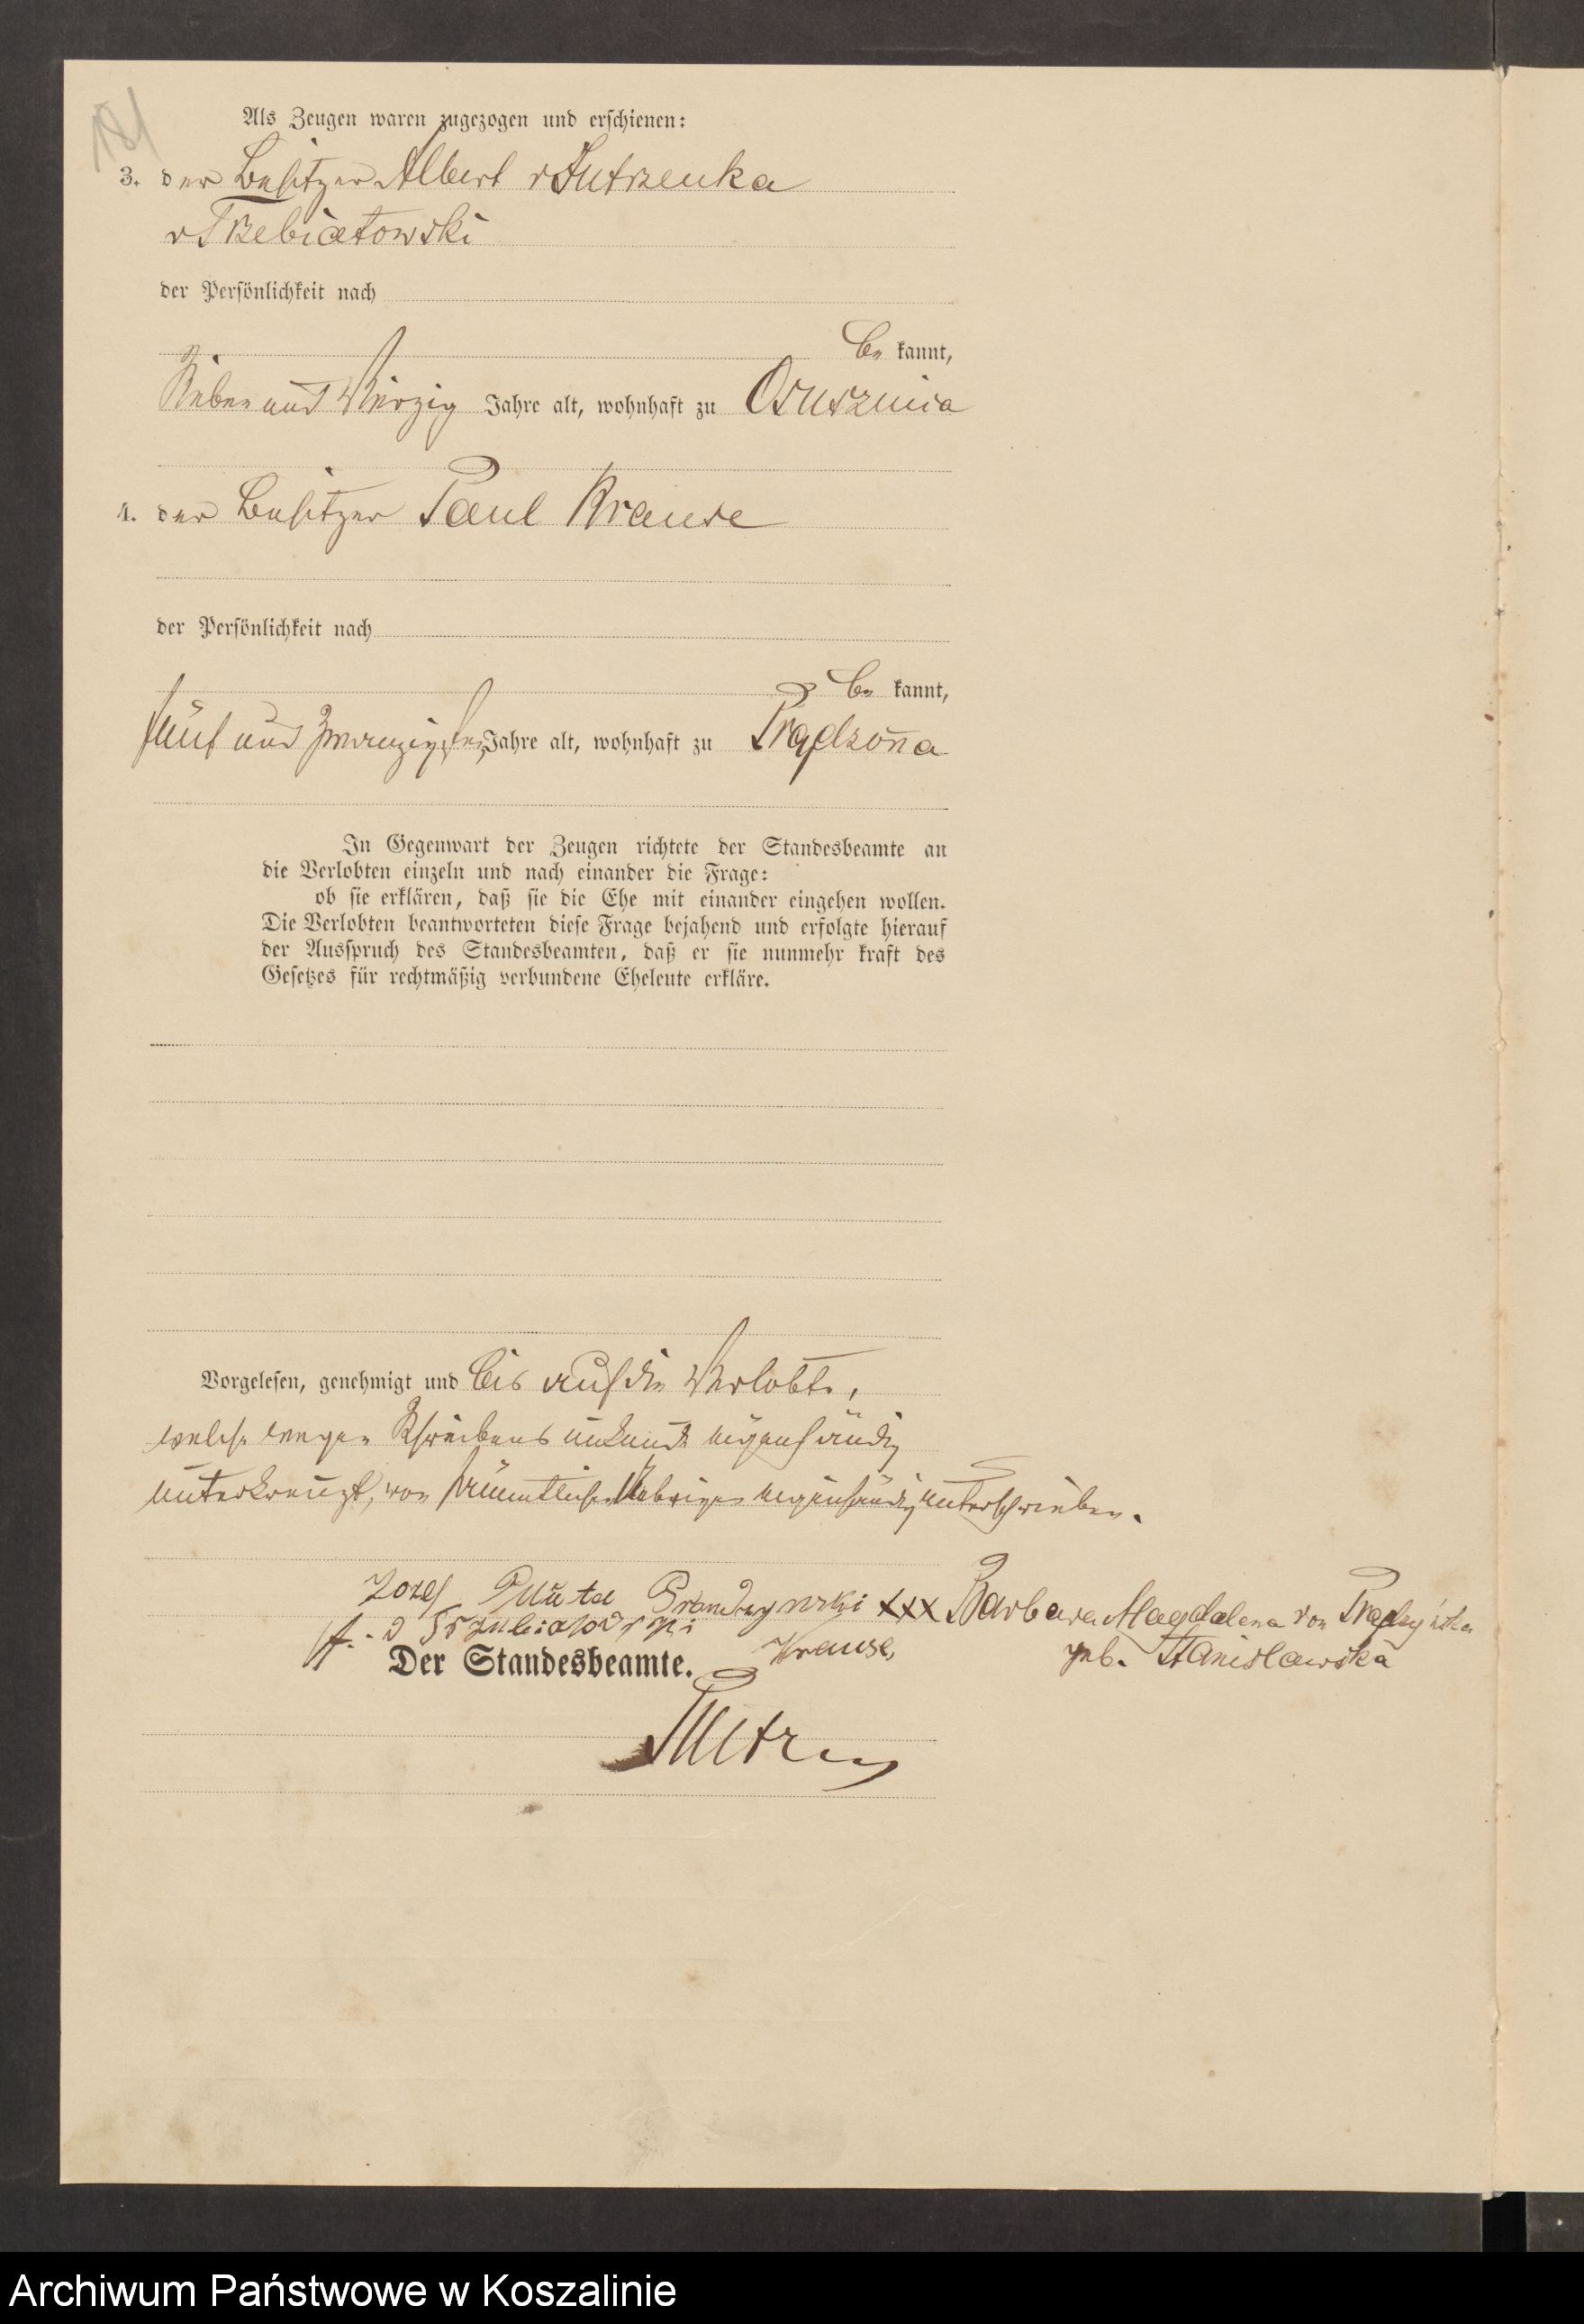 181
Als Zeugen waren zugezogen und erschienen:
3. der Besitzer Albert v Jutrzenka
v Trzebiatowski
der Persönlichkeit nach
be kannt,
Sieben und Vierzig Jahre alt, wohnhaft zu Osusznica
4. der Besitzer Paul Krause
der Persönlichkeit nach
be kannt,
fünf und zwanzig Jahre alt, wohnhaft zu Prądzona
In Gegenwart der Zeugen richtete der Standesbeamte an
die Verlobten einzeln und nach einander die Frage:
ob sie erklären, daß sie die Ehe mit einander eingehen wollen.
Die Verlobten beantworteten diese Frage bejahend und erfolgte hierauf
der Ausspruch des Standesbeamten, daß er sie nunmehr kraft des
Gesetzes für rechtmäßig verbundene Eheleute erkläre.
Vorgelesen, genehmigt und bis auf die Verlobte,
welche wegen Schreibens unkunde eigenhändig
unterkreuzt, von sämmtlichen Uebrigen eigenhändig unterschrieben.
Jozef Prondzynski xxx Barbara Magdalena von Prądzyńska
Krause, geb. Stanislawska
Der Standesbeamte.
Archiwum Państwowe w Koszalinie